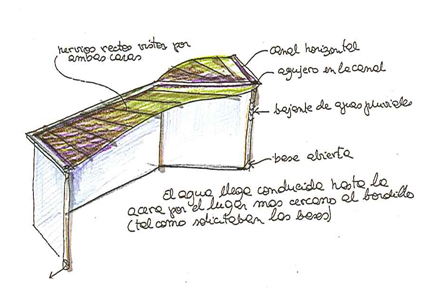 nervios rectos vistos por
ambas caras
canal horizontal
agujero en la canal
bajante de aguas pluviales
base abierta
El agua llega conducida hasta la
acera por el lugar mas cercano al bordillo
(tal como solicitaban las bases)